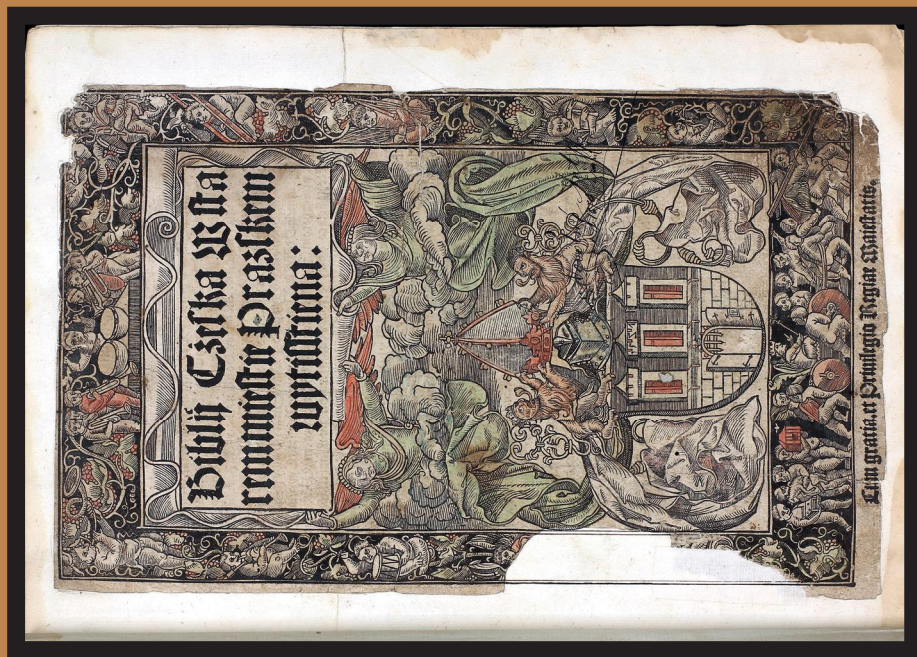 Biblij Czeska W Sta
remmiestie Prazskem
wytisstiena:
Cum gratia, et Priuilegio Regiae Maiestatis.